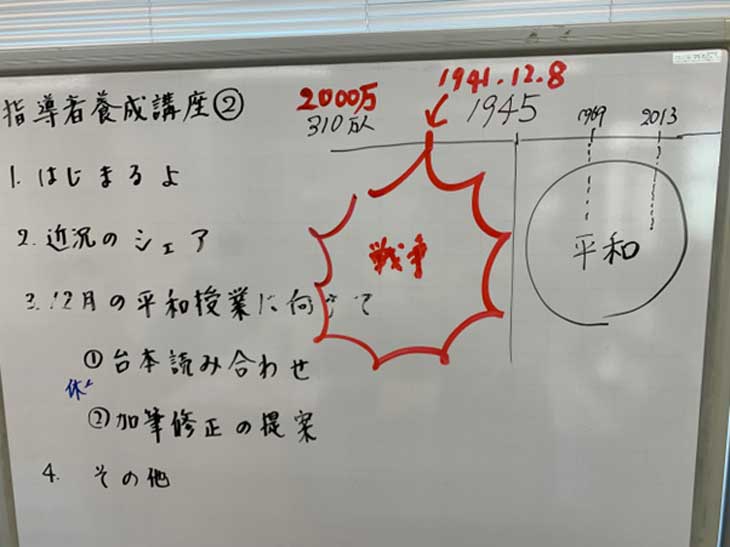 指導者養成講座②
1. はじまるよ
2. 近況のシェア
3. 12月の平和授業に向けて
①台本読み合わせ
②加筆修正の提案
4. その他
2000万
310万人
1941.12.8
1945
1969
2013
戦争
平和